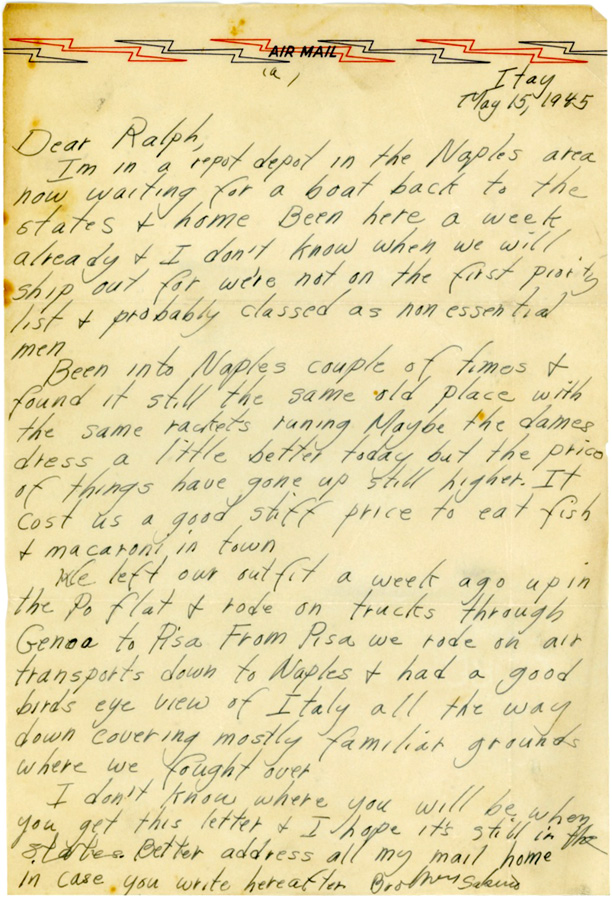 AIR MAIL
(a)
Itay
May 15, 1945
Dear Ralph,
Im in a repot depot in the Naples area
now waiting for a boat back to the
states & home Been here a week
already & I don't know when we will
ship out for we're not on the first piority
list & probably classed as non essential
men
Been into Naples couple of times &
found it still the same old place with
the same rackets runing Maybe the dames
dress a little better today but the price
of things have gone up still higher. It
cost us a good stiff price to eat fish
& macaroni in town
We left our outfit a week ago up in
the Po flat & rode on trucks through
Genoa to Pisa From Pisa we rode on air
transports down to Naples & had a good
birds eye view of Italy all the way
down covering mostly familiar grounds
where we fought over
I don't know where you will be when
you get this letter & I hope it's still in the
states. Better address all my mail home
in case you write hereafter Brother